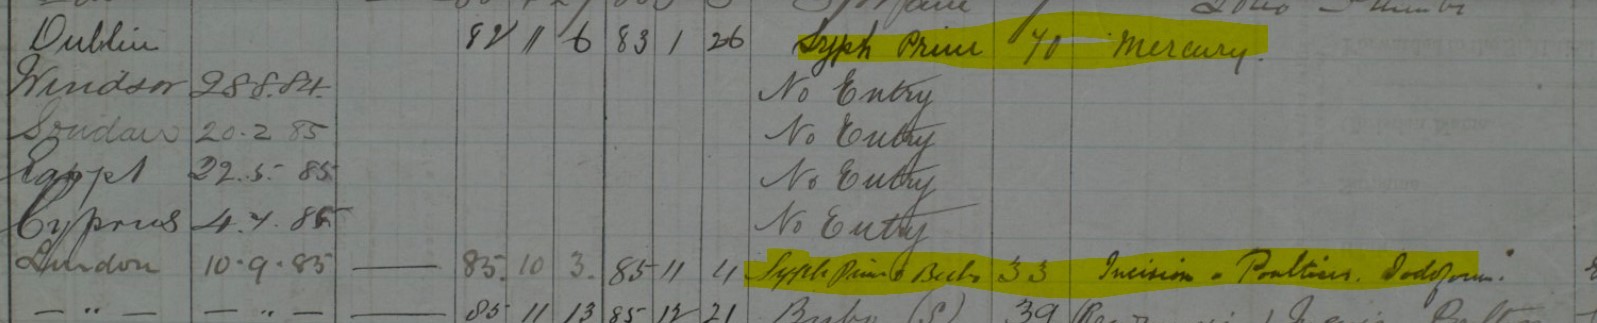 Dublin 82 11 6 83 1 26 Syph Prim 70 Mercury.
Windsor 28 8 84. No Entry
Soudan 20.2 85 No Entry
Egypt 22.5. 85 No Entry
Cyprus 4.7.85 No Entry
London 10.9.85 — 85. 10 3. 85 11 4 Syph Prim & Bubo 33 Incision & Poultices. Iodoform.
— " — — " — — 85 11 13 85 12 21 Bubo (S) 39